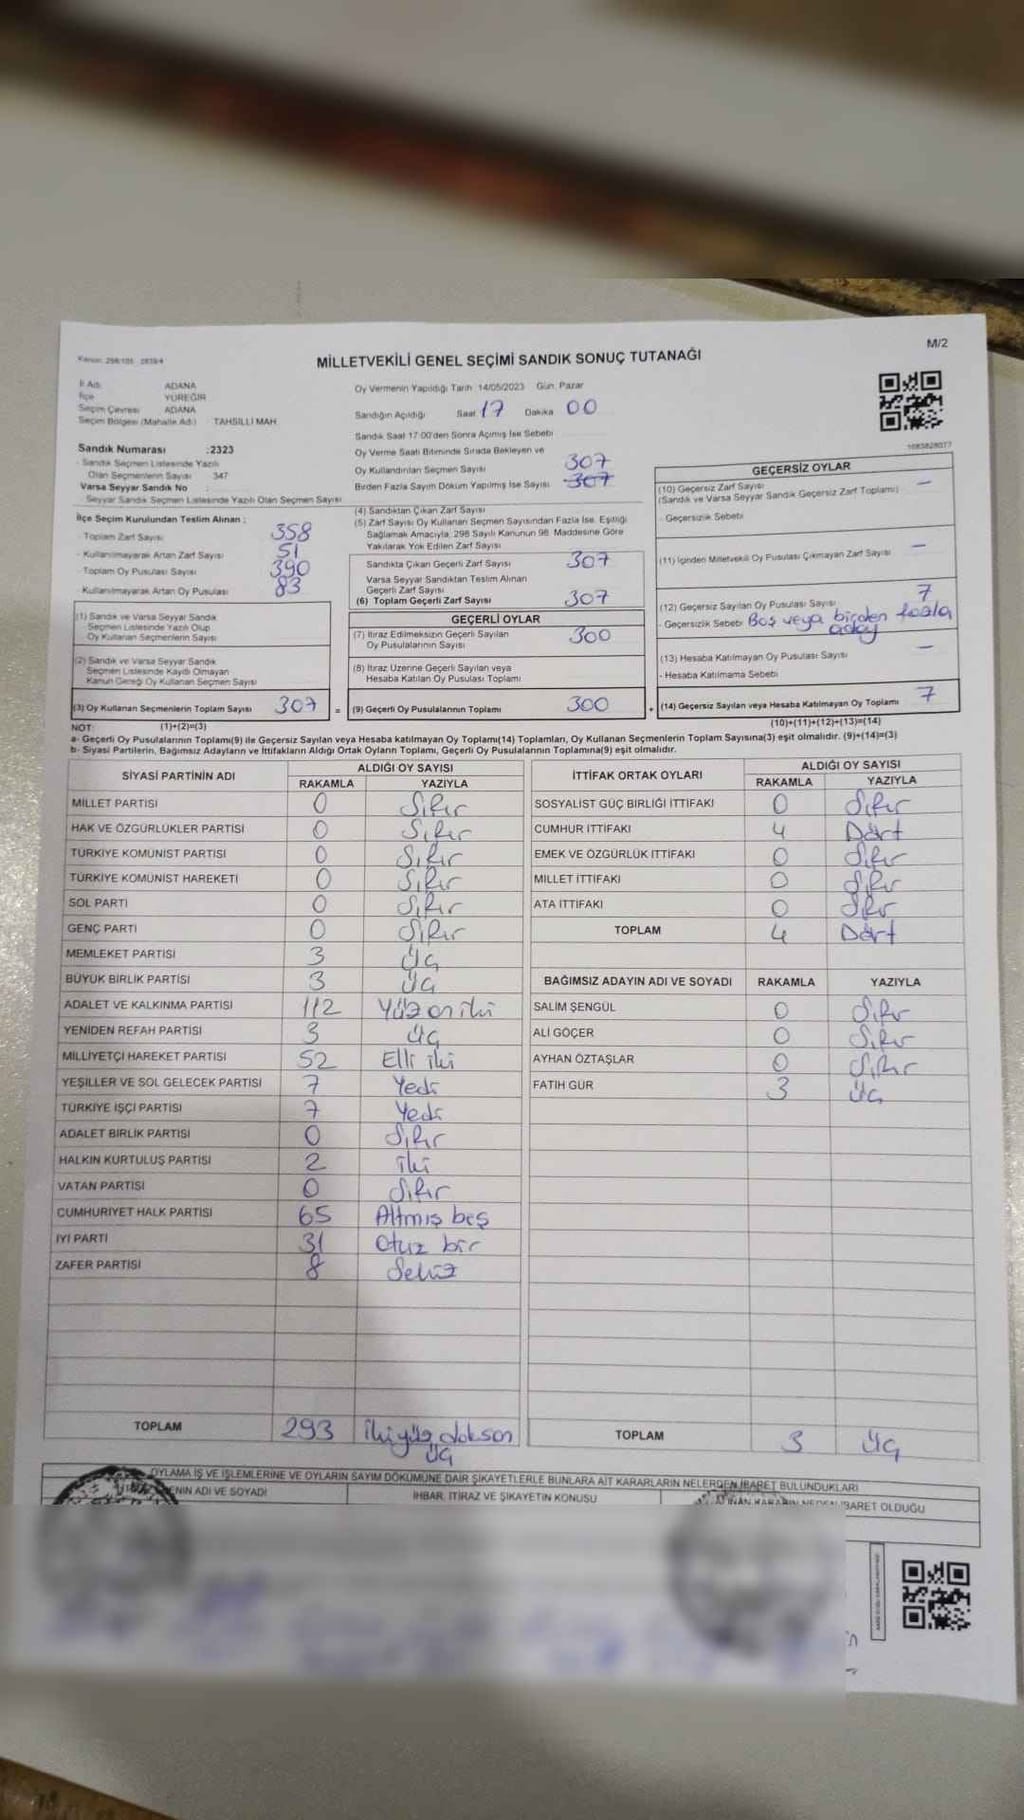 M/2
Kanun: 298/105 - 2839/4
MİLLETVEKİLİ GENEL SEÇİMİ SANDIK SONUÇ TUTANAĞI
İl Adı: ADANA
İlçe YÜREĞİR
Seçim Çevresi ADANA
Seçim Bölgesi (Mahalle Adı) TAHSİLLİ MAH.
Oy Vermenin Yapıldığı Tarih 14/05/2023 Gün: Pazar
Sandığın Açıldığı Saat 17 Dakika 00
Sandık Saat 17:00'den Sonra Açılmış İse Sebebi
Oy Verme Saati Bitiminde Sırada Bekleyen ve
Oy Kullandırılan Seçmen Sayısı 307
Birden Fazla Sayım Döküm Yapılmış İse Sayısı 307
1083828077
Sandık Numarası :2323
- Sandık Seçmen Listesinde Yazılı
Olan Seçmenlerin Sayısı 347
Varsa Seyyar Sandık No :
Seyyar Sandık Seçmen Listesinde Yazılı Olan Seçmen Sayısı
İlçe Seçim Kurulundan Teslim Alınan ;
- Toplam Zarf Sayısı 358
- Kullanılmayarak Artan Zarf Sayısı 51
- Toplam Oy Pusulası Sayısı 390
- Kullanılmayarak Artan Oy Pusulası 83
(1) Sandık ve Varsa Seyyar Sandık
Seçmen Listesinde Yazılı Olup
Oy Kullanan Seçmenlerin Sayısı
(2) Sandık ve Varsa Seyyar Sandık
Seçmen Listesinde Kayıtlı Olmayan
Kanun Gereği Oy Kullanan Seçmen Sayısı
(3) Oy Kullanan Seçmenlerin Toplam Sayısı 307 =
(4) Sandıktan Çıkan Zarf Sayısı
(5) Zarf Sayısı Oy Kullanan Seçmen Sayısından Fazla İse, Eşitliği
Sağlamak Amacıyla, 298 Sayılı Kanunun 98. Maddesine Göre
Yakılarak Yok Edilen Zarf Sayısı
Sandıkta Çıkan Geçerli Zarf Sayısı 307
Varsa Seyyar Sandıktan Teslim Alınan
Geçerli Zarf Sayısı
(6) Toplam Geçerli Zarf Sayısı 307
GEÇERLİ OYLAR
(7) İtiraz Edilmeksizin Geçerli Sayılan
Oy Pusulalarının Sayısı 300
(8) İtiraz Üzerine Geçerli Sayılan veya
Hesaba Katılan Oy Pusulası Toplamı
(9) Geçerli Oy Pusulalarının Toplamı 300 +
GEÇERSİZ OYLAR
(10) Geçersiz Zarf Sayısı —
(Sandık ve Varsa Seyyar Sandık Geçersiz Zarf Toplamı)
- Geçersizlik Sebebi
(11) İçinden Milletvekili Oy Pusulası Çıkmayan Zarf Sayısı —
(12) Geçersiz Sayılan Oy Pusulası Sayısı 7
- Geçersizlik Sebebi Boş veya birden fazla
aday
(13) Hesaba Katılmayan Oy Pusulası Sayısı —
- Hesaba Katılmama Sebebi
(14) Geçersiz Sayılan veya Hesaba Katılmayan Oy Toplamı 7
NOT: (1)+(2)=(3)
(10)+(11)+(12)+(13)=(14)
a- Geçerli Oy Pusulalarının Toplamı(9) ile Geçersiz Sayılan veya Hesaba katılmayan Oy Toplamı(14) Toplamları, Oy Kullanan Seçmenlerin Toplam Sayısına(3) eşit olmalıdır. (9)+(14)=(3)
b- Siyasi Partilerin, Bağımsız Adayların ve İttifakların Aldığı Ortak Oyların Toplamı, Geçerli Oy Pusulalarının Toplamına(9) eşit olmalıdır.
SİYASİ PARTİNİN ADI ALDIĞI OY SAYISI
RAKAMLA YAZIYLA
MİLLET PARTİSİ 0 Sıfır
HAK VE ÖZGÜRLÜKLER PARTİSİ 0 Sıfır
TÜRKİYE KOMÜNİST PARTİSİ 0 Sıfır
TÜRKİYE KOMÜNİST HAREKETİ 0 Sıfır
SOL PARTİ 0 Sıfır
GENÇ PARTİ 0 Sıfır
MEMLEKET PARTİSİ 3 Üç
BÜYÜK BİRLİK PARTİSİ 3 Üç
ADALET VE KALKINMA PARTİSİ 112 Yüz on iki
YENİDEN REFAH PARTİSİ 3 Üç
MİLLİYETÇİ HAREKET PARTİSİ 52 Elli iki
YEŞİLLER VE SOL GELECEK PARTİSİ 7 Yedi
TÜRKİYE İŞÇİ PARTİSİ 7 Yedi
ADALET BİRLİK PARTİSİ 0 Sıfır
HALKIN KURTULUŞ PARTİSİ 2 İki
VATAN PARTİSİ 0 Sıfır
CUMHURİYET HALK PARTİSİ 65 Altmış beş
İYİ PARTİ 31 Otuz bir
ZAFER PARTİSİ 8 Sekiz
TOPLAM 293 İki yüz doksan
üç
İTTİFAK ORTAK OYLARI ALDIĞI OY SAYISI
RAKAMLA YAZIYLA
SOSYALİST GÜÇ BİRLİĞİ İTTİFAKI 0 Sıfır
CUMHUR İTTİFAKI 4 Dört
EMEK VE ÖZGÜRLÜK İTTİFAKI 0 Sıfır
MİLLET İTTİFAKI 0 Sıfır
ATA İTTİFAKI 0 Sıfır
TOPLAM 4 Dört
BAĞIMSIZ ADAYIN ADI VE SOYADI RAKAMLA YAZIYLA
SALİM ŞENGÜL 0 Sıfır
ALİ GÖÇER 0 Sıfır
AYHAN ÖZTAŞLAR 0 Sıfır
FATİH GÜR 3 Üç
TOPLAM 3 Üç
OYLAMA İŞ VE İŞLEMLERİNE VE OYLARIN SAYIM DÖKÜMÜNE DAİR ŞİKAYETLERLE BUNLARA AİT KARARLARIN NELERDEN İBARET BULUNDUKLARI
ADI VE SOYADI
İHBAR, İTİRAZ VE ŞİKAYETİN KONUSU
İBARET OLDUĞU